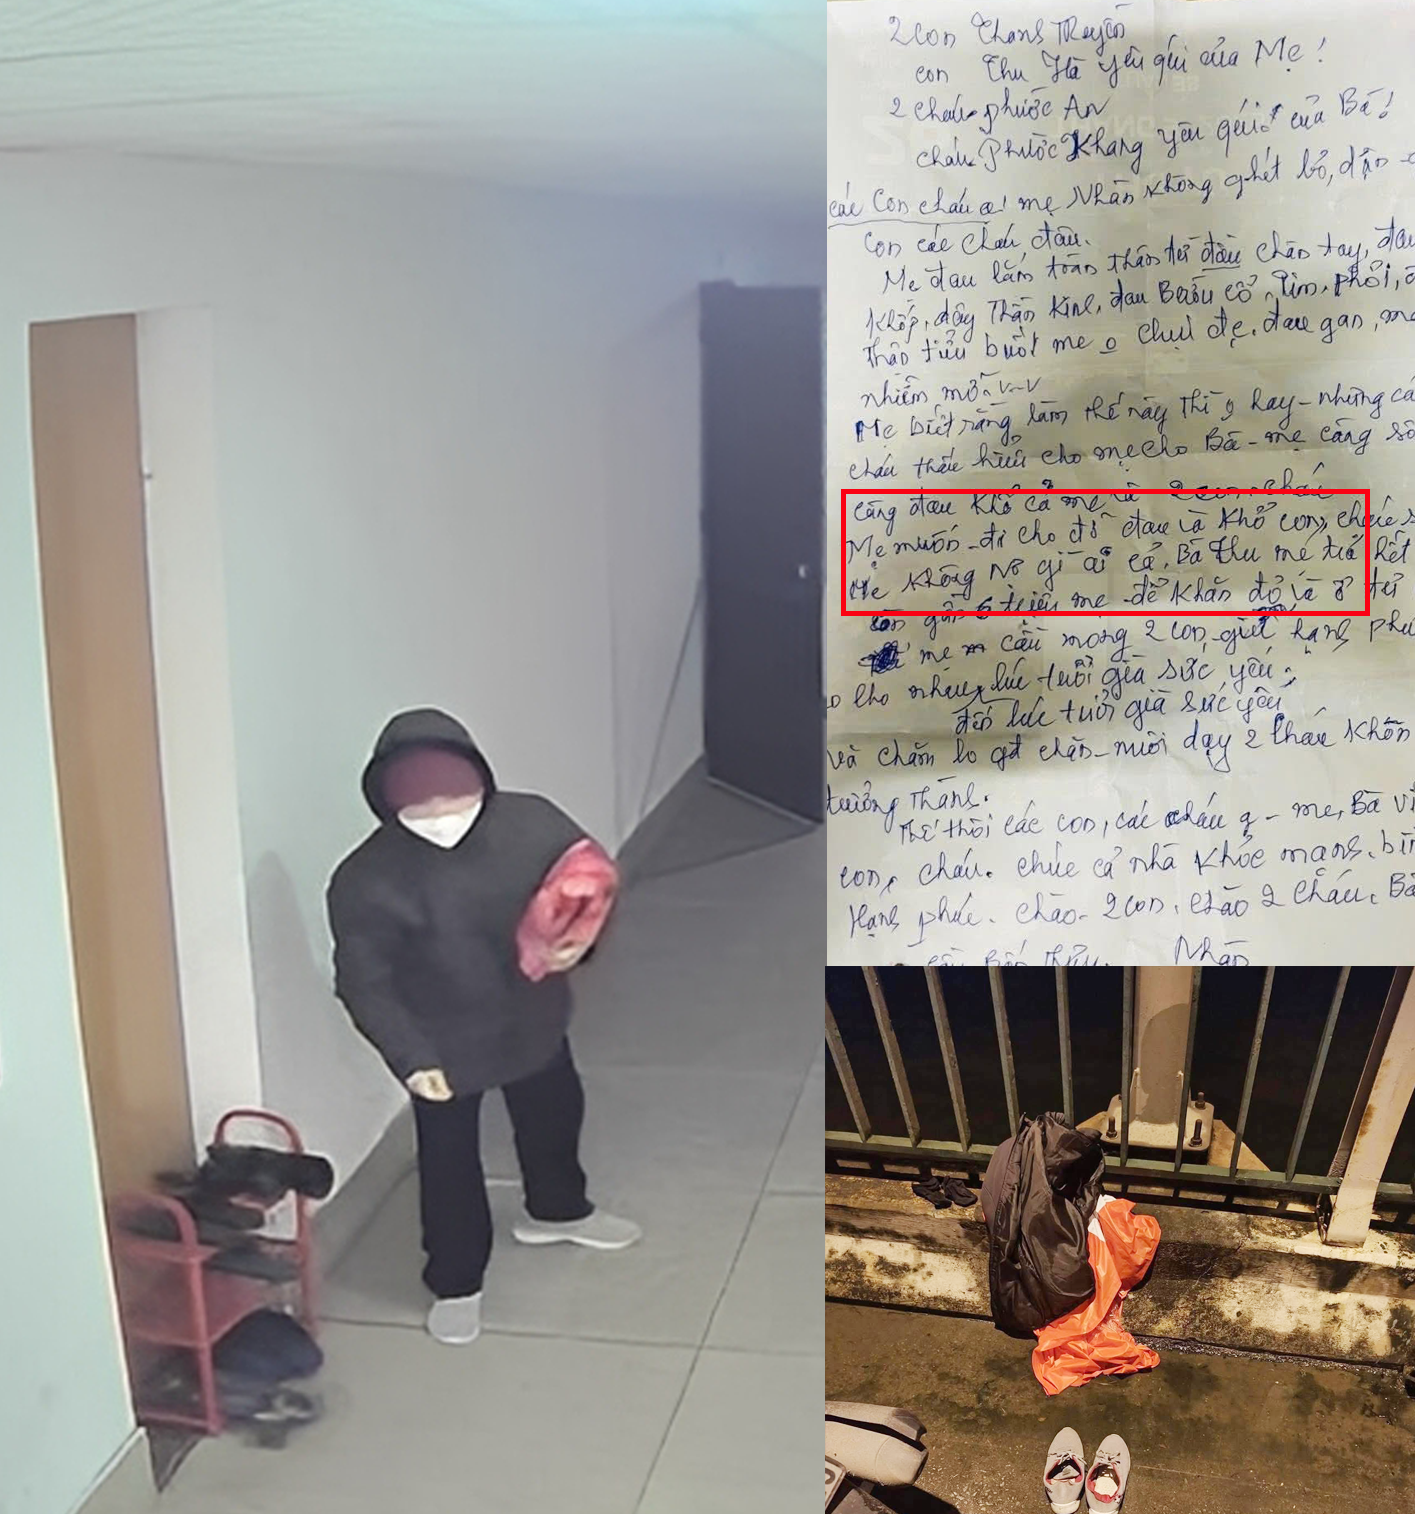 2 con Thanh Truyền
con Thu Hà yêu quí của Mẹ!
2 cháu phước An
cháu Phước Khang yêu quí của Bà!
các con cháu ơi mẹ Nhàn không ghét bỏ, dận
con các cháu, đâu.
Mẹ đau lắm toàn thân từ đầu chân tay, đau
khớp, dây thần kinh, đau Bướu cổ, Tim, phổi,
thận tiểu buốt mẹ o chịu đc, đau gan, mỡ
nhiễm mỡ v-v
Mẹ biết rằng làm thế này thì o hay - nhưng
cháu thấu hiểu cho mẹ cho Bà - mẹ càng
càng đau khổ cả mẹ và 2 con cháu
Mẹ muốn đi cho đỡ đau và khổ con, cháu
Mẹ không nợ gì ai cả, Bà Thu mẹ trả hết
còn gần triệu mẹ để khăn đỏ và ở tủ
mẹ cầu mong 2 con giữ hạnh
lo cho nhau, lúc tuổi già sức yếu,
đến lúc tuổi già sức yếu
và chăm lo chăn nuôi dạy 2 cháu khôn
trưởng thành.
Thế thôi các con, các cháu - mẹ, Bà
con, cháu. chúc cả nhà khỏe mạnh,
Hạnh phúc. chào 2 con, chào 2 cháu, Bà
Nhàn